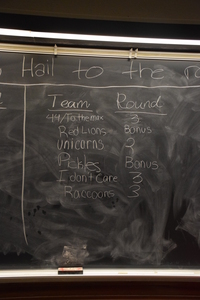 Hail to the
Team Round
44/To the max 3
Red Lions Bonus
Unicorns 2
Pickles Bonus
I don't Care 3
Raccoons 3